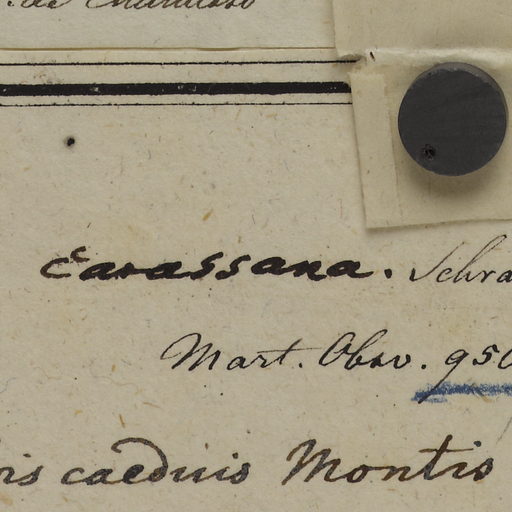 de
Carassana. Schra
Mart. Obsv. 950
is caeduis Montis